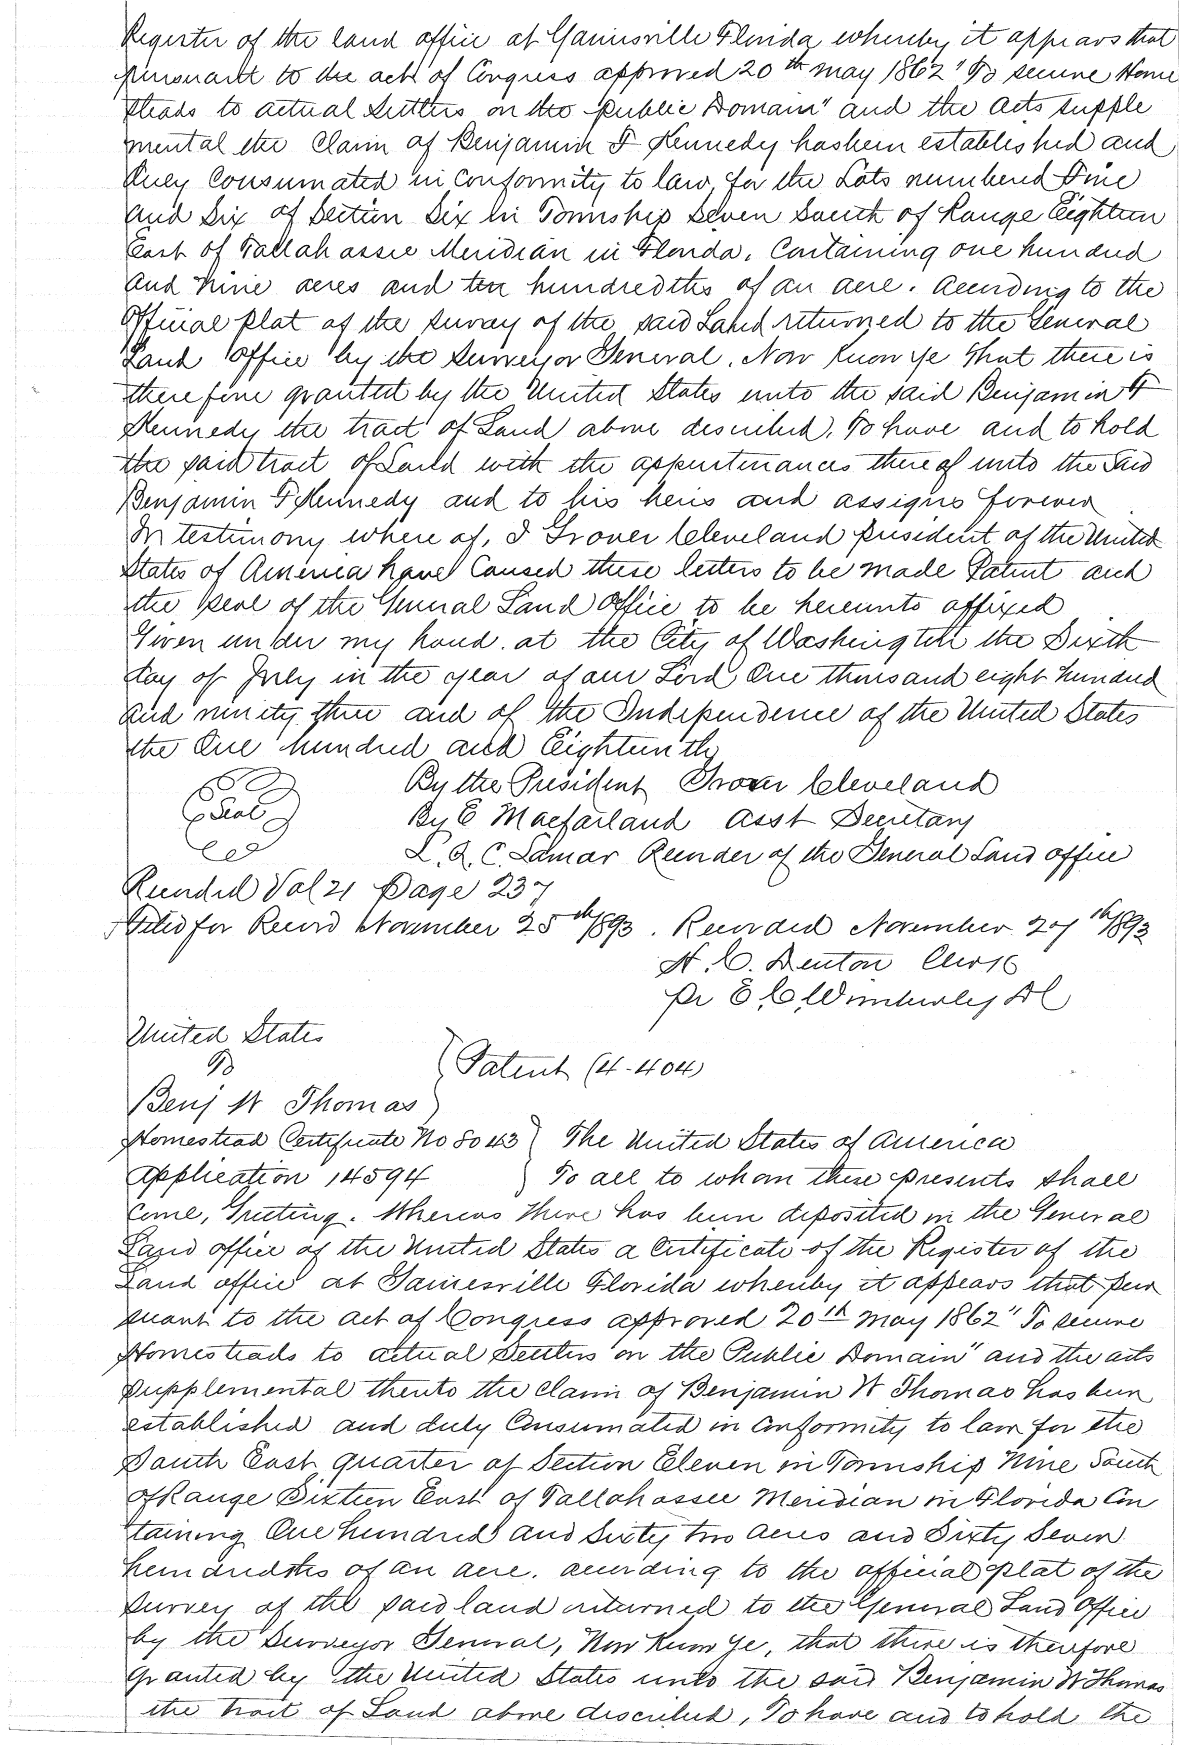 Register of the land office at Gainesville Florida whereby it appears that
pursuant to the act of Congress approved 20th May 1862 "To secure Home
steads to actual Settlers on the public Domain" and the acts supple
mental the Claim of Benjamin F Kennedy has been established and
duly Consumated in Conformity to law, for the Lots numbered Five
and Six of Section Six in Township Seven South of Range Eighteen
East of Tallahassee Meridian in Florida, Containing one hundred
and Nine acres and ten hundredths of an acre. According to the
Official plat of the survay of the said Land returned to the General
Land Office by the Surveyor General. Now Know Ye That there is
therefore granted by the United States unto the said Benjamin F
Kennedy the tract of Land above described. To have and to hold
the said tract of Land with the appurtenances thereof unto the Said
Benjamin F Kennedy and to his heirs and assigns forever
In testimony where of, I Grover Cleveland president of the United
States of America have Caused these letters to be made Patent and
the seal of the General Land Office to be hereunto affixed
Given under my hand at the City of Washington the Sixth
day of July in the year of our Lord One thousand eight hundred
and ninety three and of the Independence of the United States
the One hundred and Eighteenth
By the President Grover Cleveland
Seal By E Macfarland Asst Secretary
L. Q. C. Lamar Recorder of the General Land office
Recorded Vol 21 Page 237
Filed for Record November 25th 1893. Recorded November 27th 1893
H. C. Denton Clerk
pr E. C. Wimberley DC
United States
To
Patent (4-404)
Benj W Thomas
Homestead Certificate No 8043 The United States of America
Application 14594 To all to whom these presents shall
Come, Greeting. Whereas there has been deposited in the General
Land office of the United States a Certificate of the Register of the
Land office at Gainesville Florida whereby it appears that pur
suant to the act of Congress approved 20th May 1862 "To secure
Homesteads to actual Settlers on the Public Domain" and the acts
Supplemental thereto the Claim of Benjamin W Thomas has been
established and duly Consumated in Conformity to law for the
South East quarter of Section Eleven in Township Nine South
of Range Sixteen East of Tallahassee Meridian in Florida Con
taining One hundred and Sixty two acres and Sixty Seven
hundredths of an acre. according to the official plat of the
Survey of the said land returned to the General Land Office
by the Surveyor General, Now Know Ye, that there is therefore
granted by the United States unto the said Benjamin W Thomas
the tract of Land above described, To have and to hold the